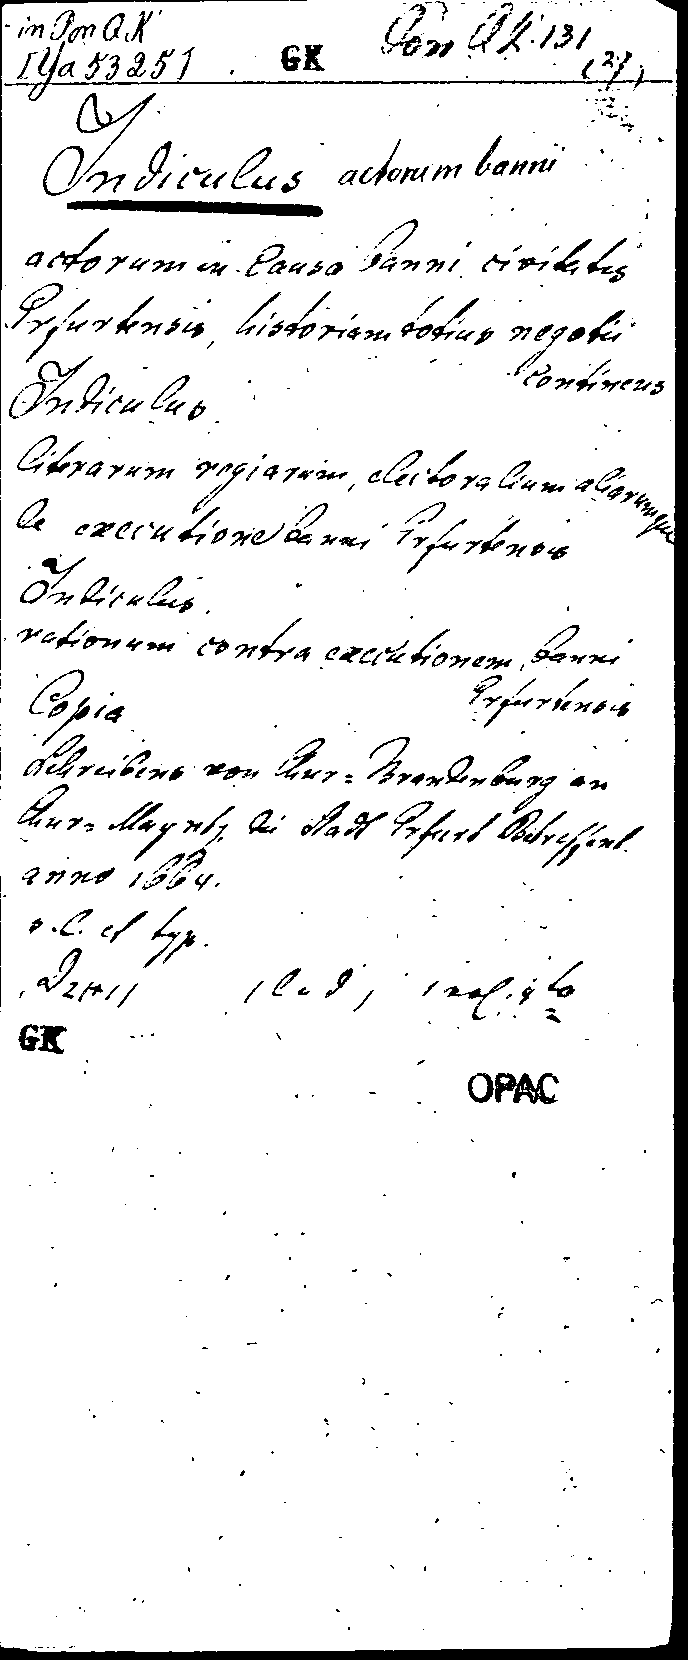 in Pon Q.K
IYa 53251 . GK Pon QK. 131
(2),
Indiculus actorum banni
actorum in Causa banni civitatis
Erfurtensis, historiam totius negotii
continens
Indiculus
literarum regiarum, electoralium aliarumque
de executione banni Erfurtensis
Indiculus.
rationum contra executionem banni
Erfurtensis
Copia
Schreibens von Chur-Brandenburg an
Chur-Mayntz, die Stadt Erfurt Betreffent.
anno 1664.
s. l. et typ.
4to
GK
OPAC